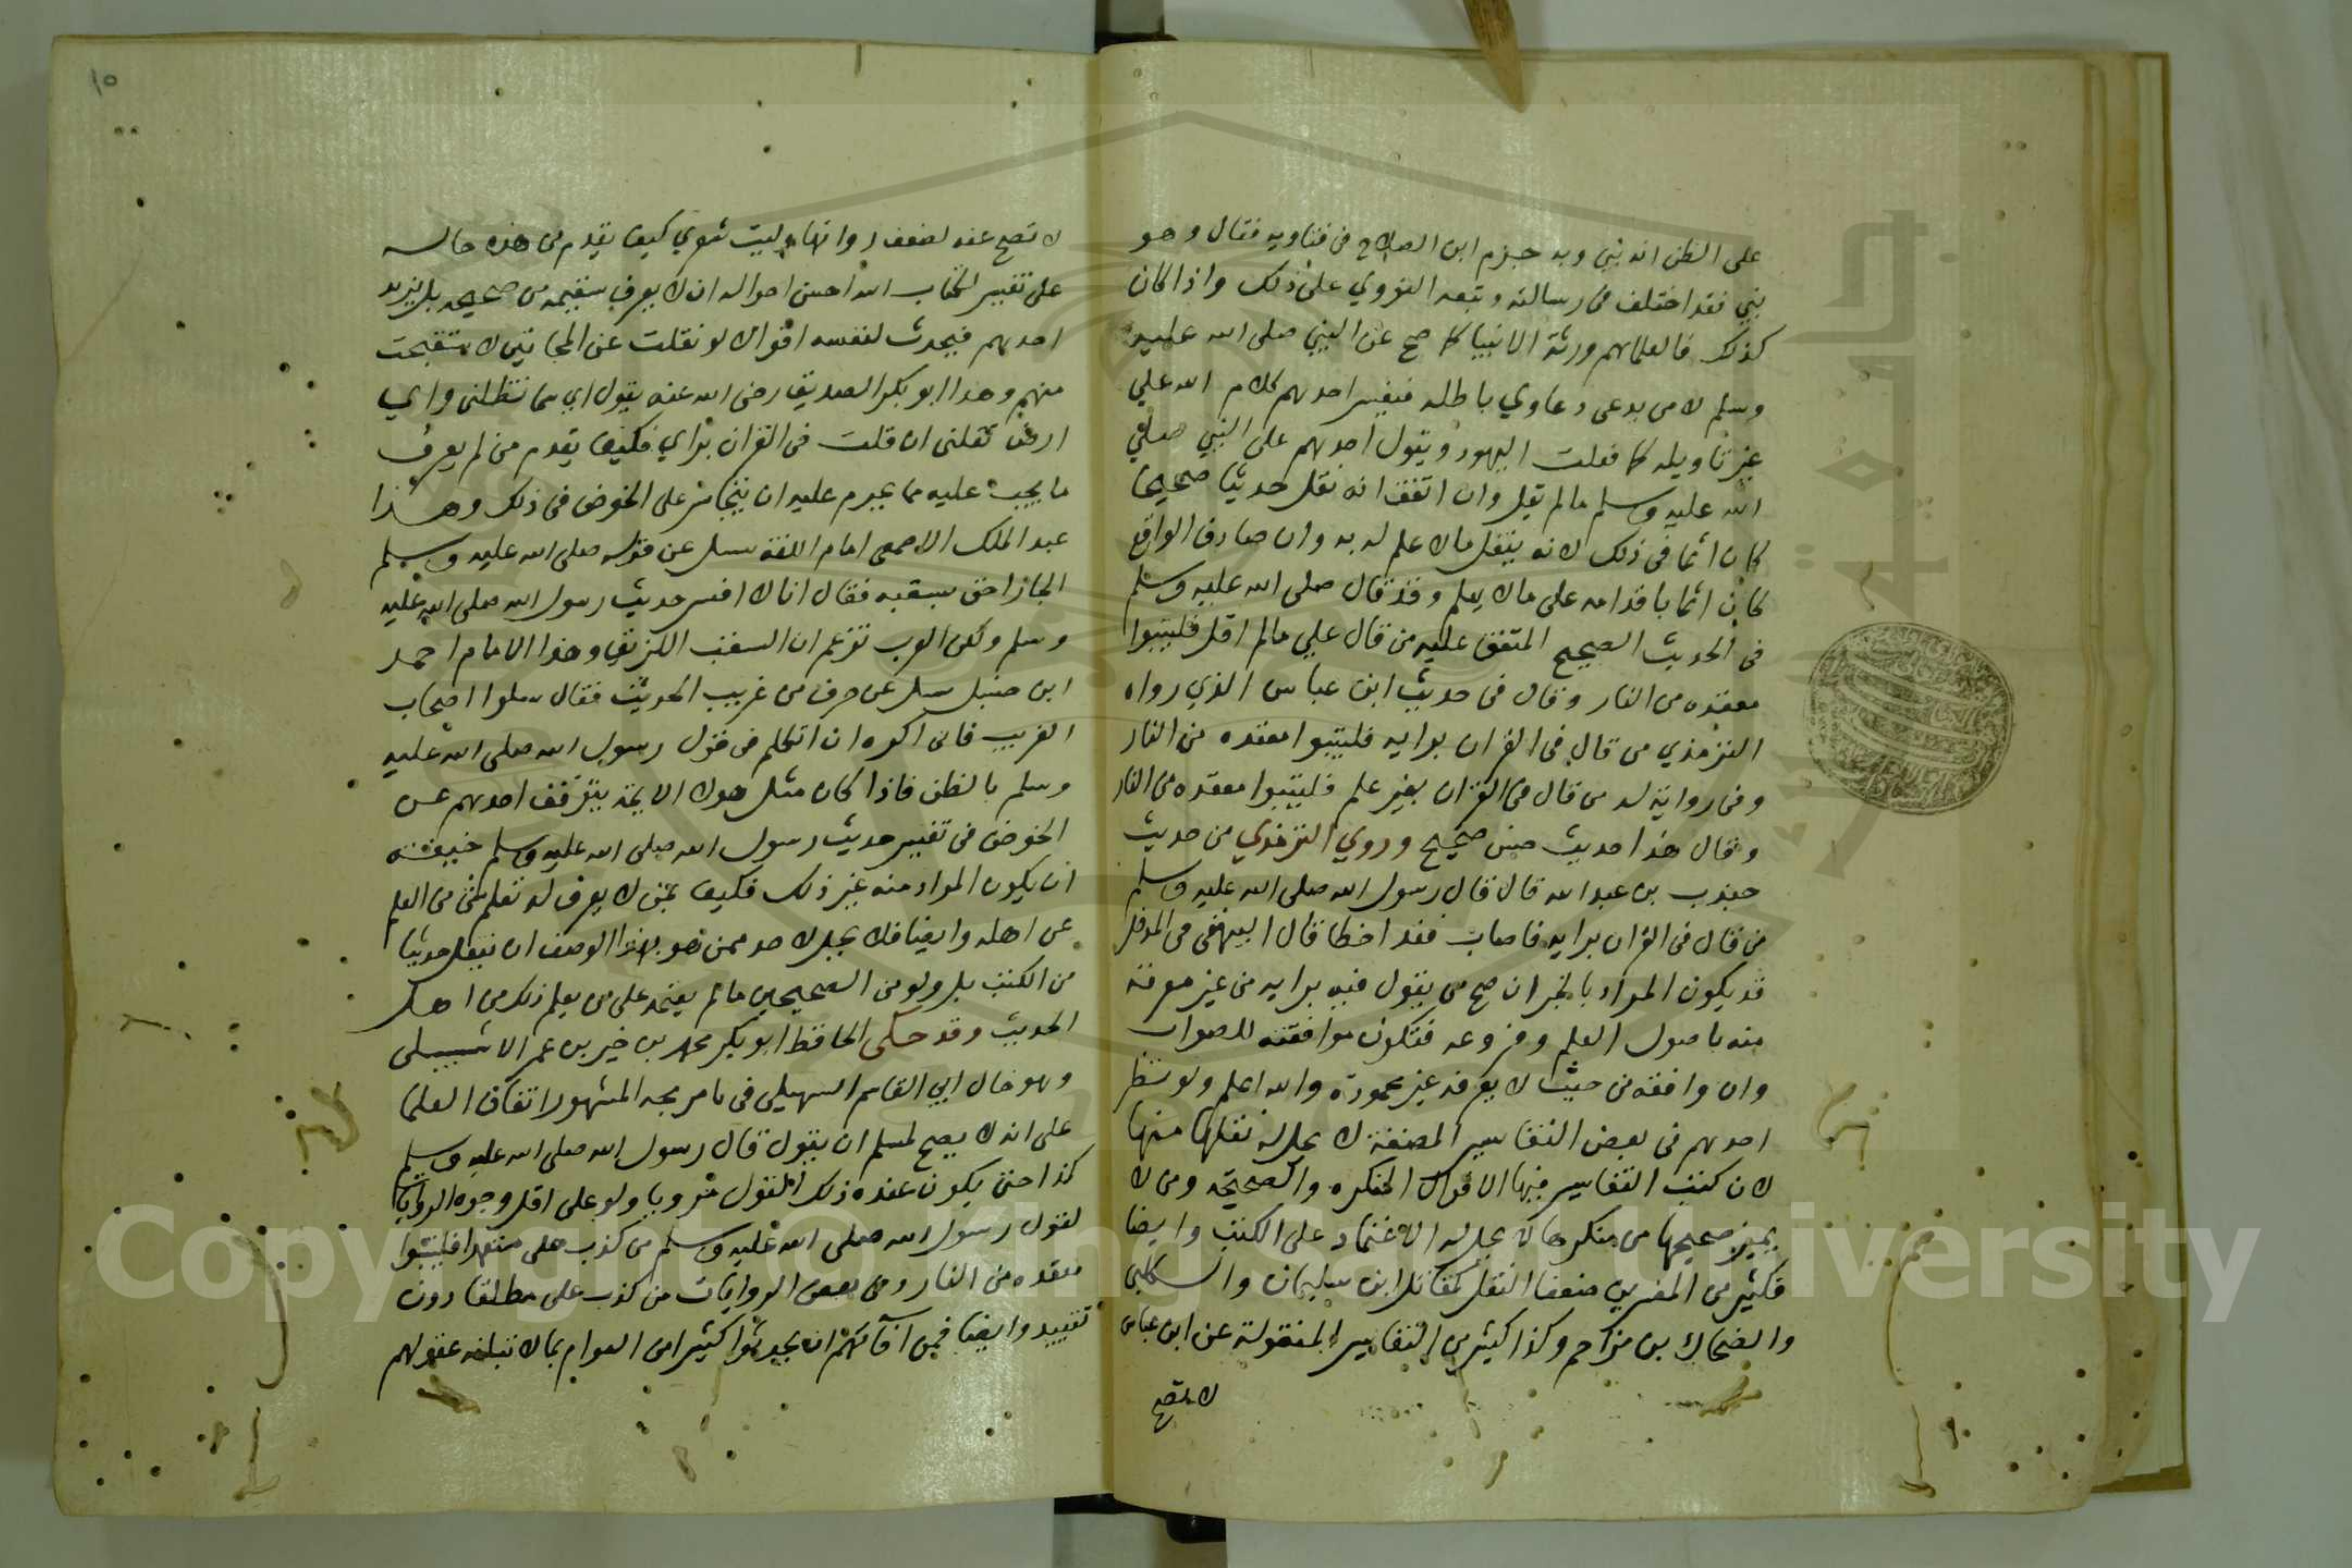 على الظن انه نبي وبه جزم ابن الصلاح في فتاويه فقال وهو
نبي فقد اختلف في رسالته وتبعه النووي على ذلك واذا كان
كذلك فالعلما هم ورثة الانبيا كما صح عن النبي صلى الله عليه
وسلم لا من يدعى دعاوي باطله فيفسر احدهم كلام الله علي
غير تاويله كما فعلت اليهود ويقول احدهم على النبي صلي
الله عليه وسلم مالم يقل وان اتفق انه نقل حديثا صحيحا
كان اثما في ذلك لانه ينقل مالا علم له به وان صادف الواقع
كان اثما باقدامه على مالا يعلم وقد قال صلى الله عليه وسلم
في الحديث الصحيح المتفق عليه من قال علي مالم اقل فليتبوا
مقعده من النار وقال في حديث ابن عباس الذي رواه
الترمذي من قال في القران برايه فليتبوا مقعده من النار
وفي رواية له من قال في القران بغير علم فليتبوا مقعده من النار
وقال هذا حديث حسن صحيح وروي الترمذي من حديث
جندب بن عبد الله قال قال رسول الله صلى الله عليه وسلم
من قال في القران برايه فاصاب فقد اخطا قال البيهقي في المدخل
قد يكون المراد بالخبر ان صح من يقول فيه برايه من غير معرفة
منه باصول العلم وفروعه فتكون موافقته للصواب
وان وافقه من حيث لا يعرفه غير محمودة والله اعلم ولو نظر
احدهم في بعض التفاسير المصنفة لا يحل له نقلها منها
لان كتب التفاسير فيها الاقوال المنكره والصحيحه ومن لا
يميز صحيحها من منكرها لا يحل له الاعتماد على الكتب وايضا
فكثير من المفسرين ضعفا النقل كمقاتل ابن سليمان والكلبي
والضحاك بن مزاحم وكذا كثير من التفاسير المنقولة عن ابن عباس
لا تصح
١٥
لا تصح عنه لضعف رواتها وليت شعري كيف يقدم من هذه حاله
على تفسير كتاب الله احسن احواله ان لا يعرف سقيمه من صحيحه بل يزيد
احدهم فيحدث لنفسه اقوالا لو نقلت عن المجانين لاستقبحت
منهم وهذا ابو بكر الصديق رضى الله عنه يقول اي سما تظلني واي
ارض تقلني ان قلت في القران براي فكيف يقدم من لم يعرف
ما يجب عليه مما يحرم عليه ان يتجاسر على الخوض في ذلك وهذا
عبد الملك الاصمعي امام اللغة سيل عن قوله صلى الله عليه وسلم
الجار احق بسقبه فقال انا لا افسر حديث رسول الله صلى الله عليه
وسلم ولكن العرب تزعم ان السقب اللزيق وهذا الامام احمد
ابن حنبل سيل عن حرف من غريب الحديث فقال سلوا اصحاب
الغريب فاني اكره ان اتكلم في قول رسول الله صلى الله عليه
وسلم بالظن فاذا كان مثل هولا الايمة يتوقف احدهم عن
الخوض في تفسير حديث رسول الله صلى الله عليه وسلم خيفة
ان يكون المراد منه غير ذلك فكيف بمن لا يعرف له تعلم شي من العلم
عن اهله وايضا فلا يحل لاحد ممن هو بهذا الوصف ان ينقل حديثا
من الكتب بل ولو من الصحيحين مالم يعتمد على من يعلم ذلك من اهل
الحديث وقد حكى الحافظ ابو بكر محمد بن خير بن عمر الاشبيلي
وهو خال ابي القاسم السهيلي في بامر مجه المشهور اتفاق العلما
على انه لا يصح لمسلم ان يقول قال رسول الله صلى الله عليه وسلم
كذا حتى يكون عنده ذلك القول مرويا ولو على اقل وجوه الروايات
لقول رسول الله صلى الله عليه وسلم من كذب على متعمدا فليتبوا
مقعده من النار وفي بعض الروايات من كذب على مطلقا دون
تقييد وايضا فمن افاتهم ان يحدثوا كثيرا من العوام بما لا تبلغه عقولهم
Copyright © King Saud University